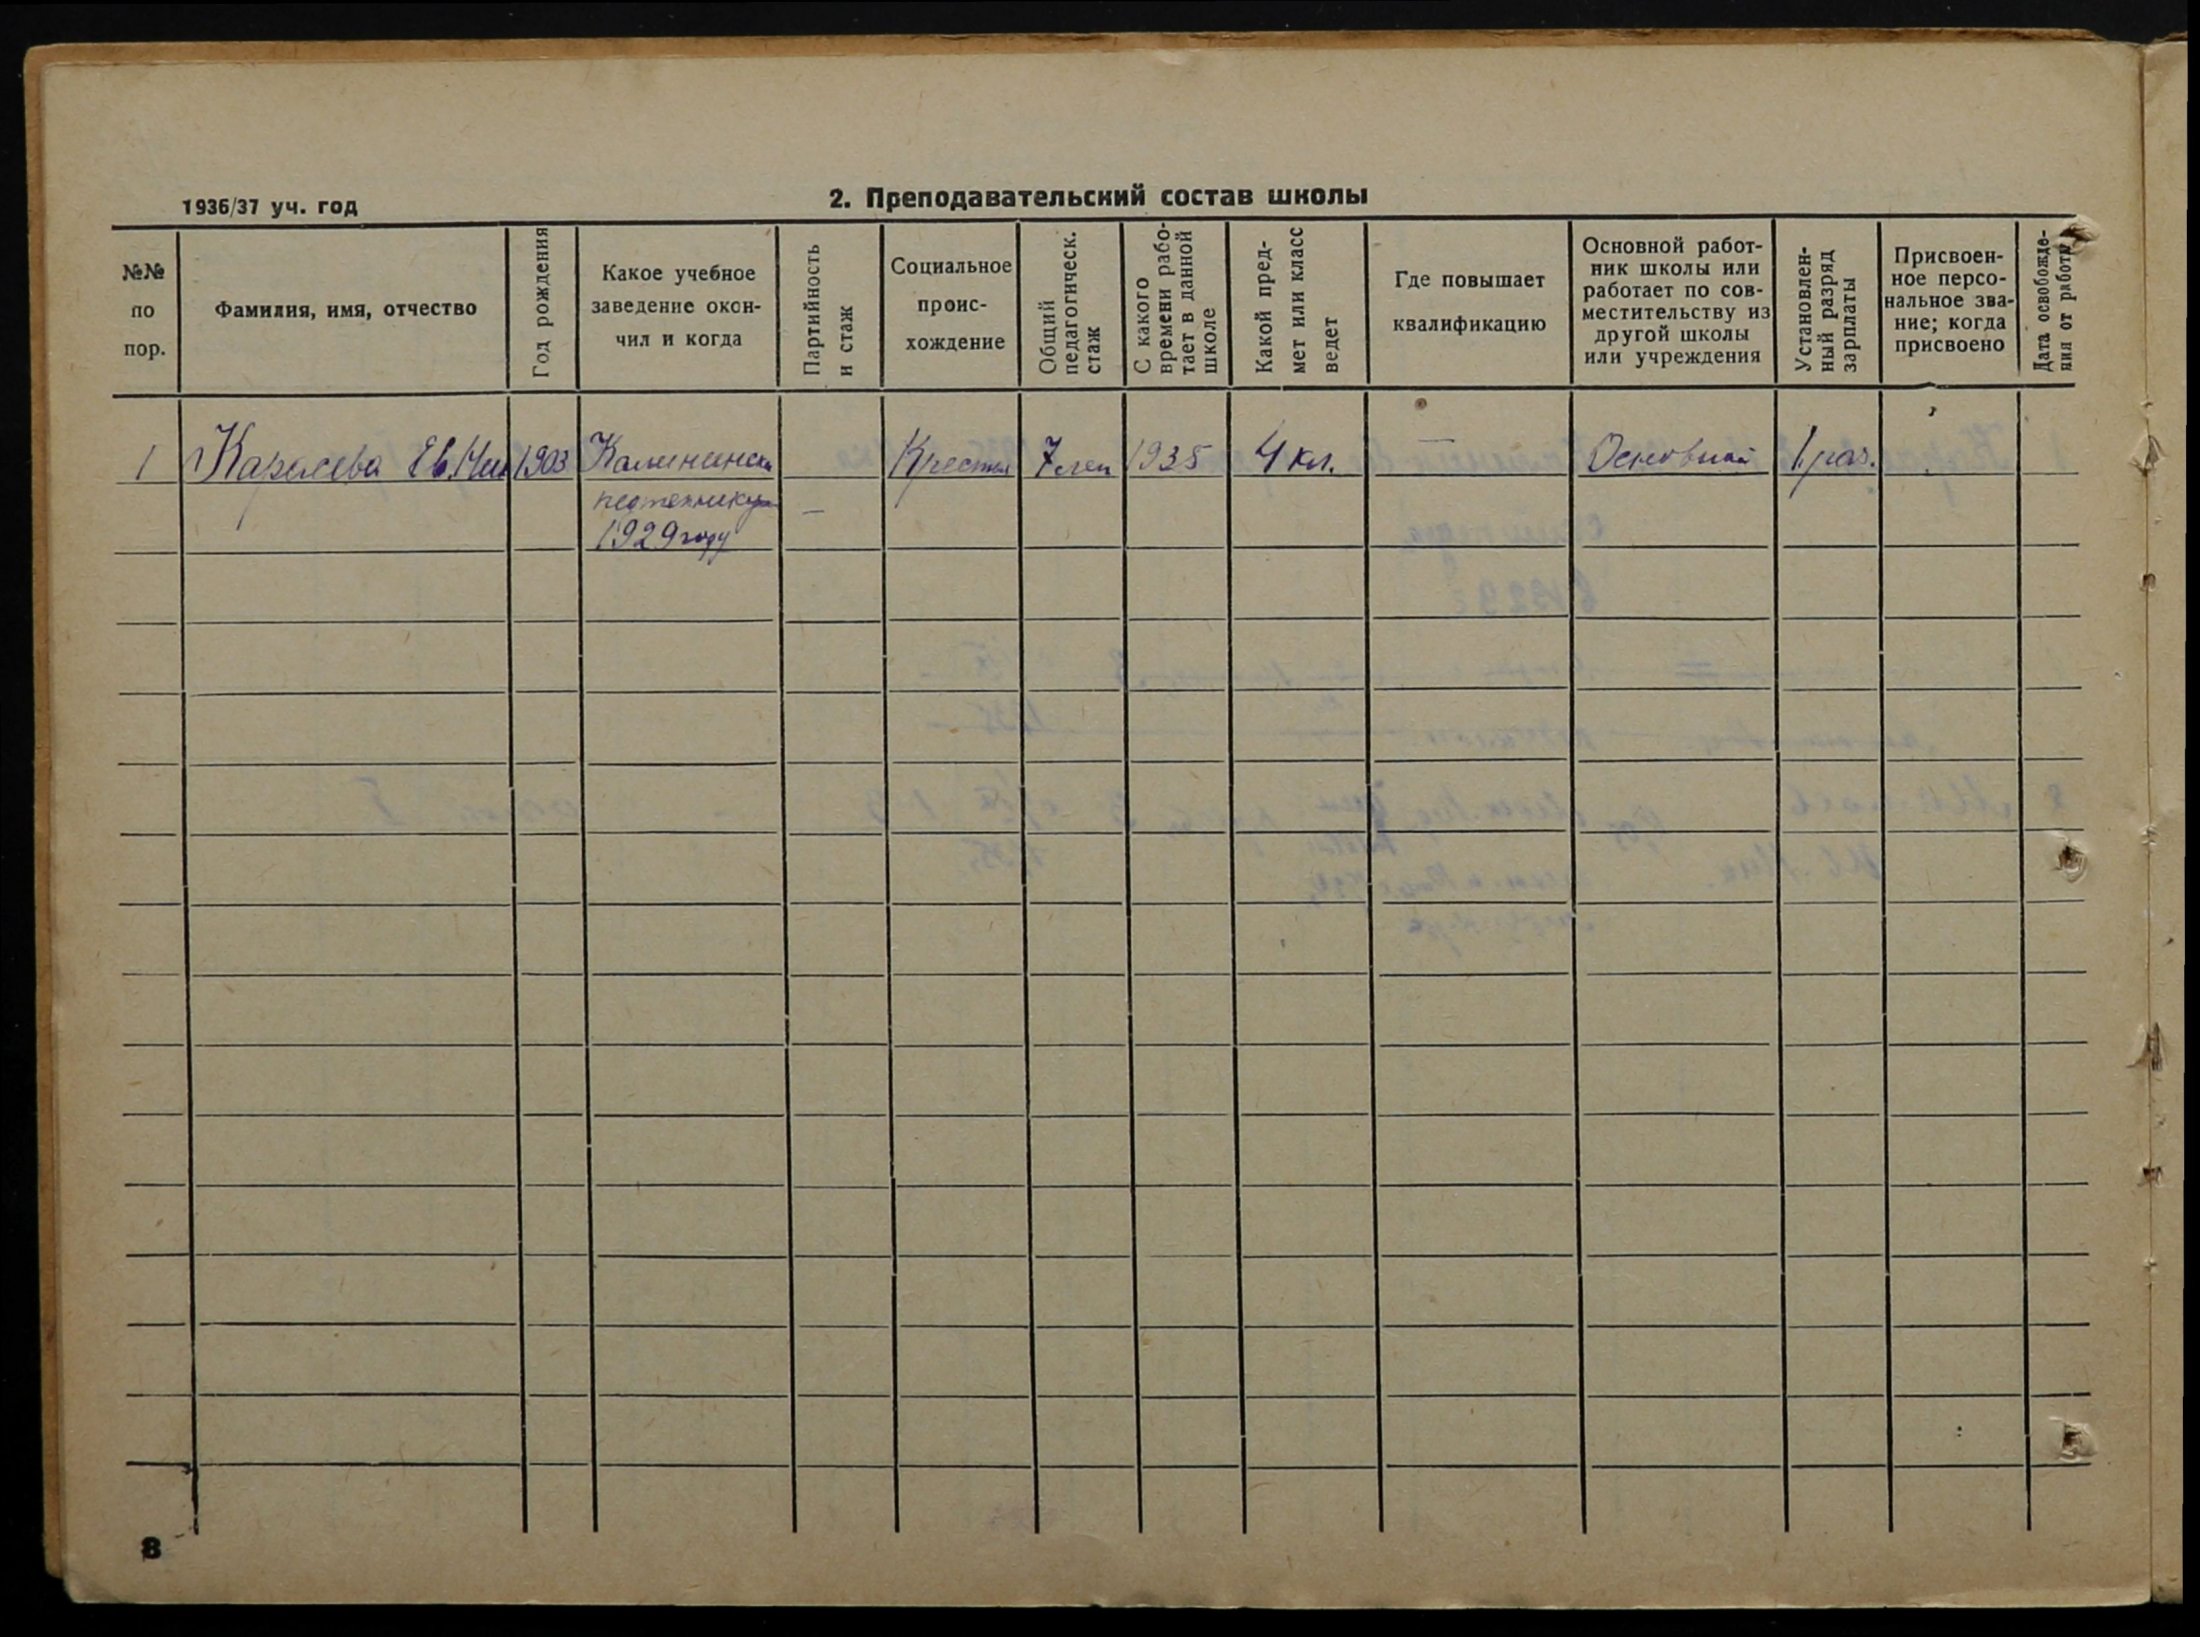 1936/37 уч. год
2. Преподавательский состав школы
№№ по пор.
Фамилия, имя, отчество
Год рождения
Какое учебное заведение окончил и когда
Партийность и стаж
Социальное происхождение
Общий педагогическ. стаж
С какого времени работает в данной школе
Какой предмет или класс ведет
Где повышает квалификацию
Основной работник школы или работает по совместительству из другой школы или учреждения
Установленный разряд зарплаты
Присвоенное персональное звание; когда присвоено
Дата освобождения от работы
1 Ев. 1903 Калининск 1935 4 кл. — Основной 1 раз.
педтехникум —
1929 году
8